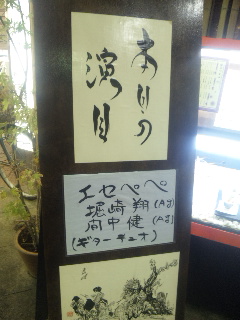 本日の
演目
エセペペ
堀崎翔(Ag)
間中健(Ag)
(ギターデュオ)